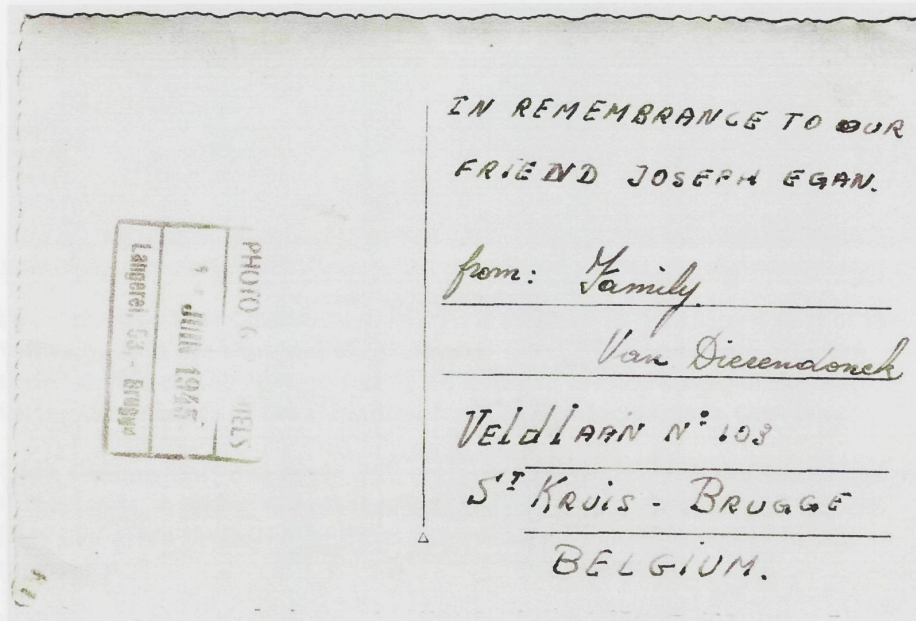 IN REMEMBRANCE TO OUR
FRIEND JOSEPH EGAN.
from: Family
Van Dierendonck
Veldlaan N° 103
ST Kruis - BRUGGE
BELGIUM.
PHOTO
JUIN 1945
Langerei, 53, - Brugge